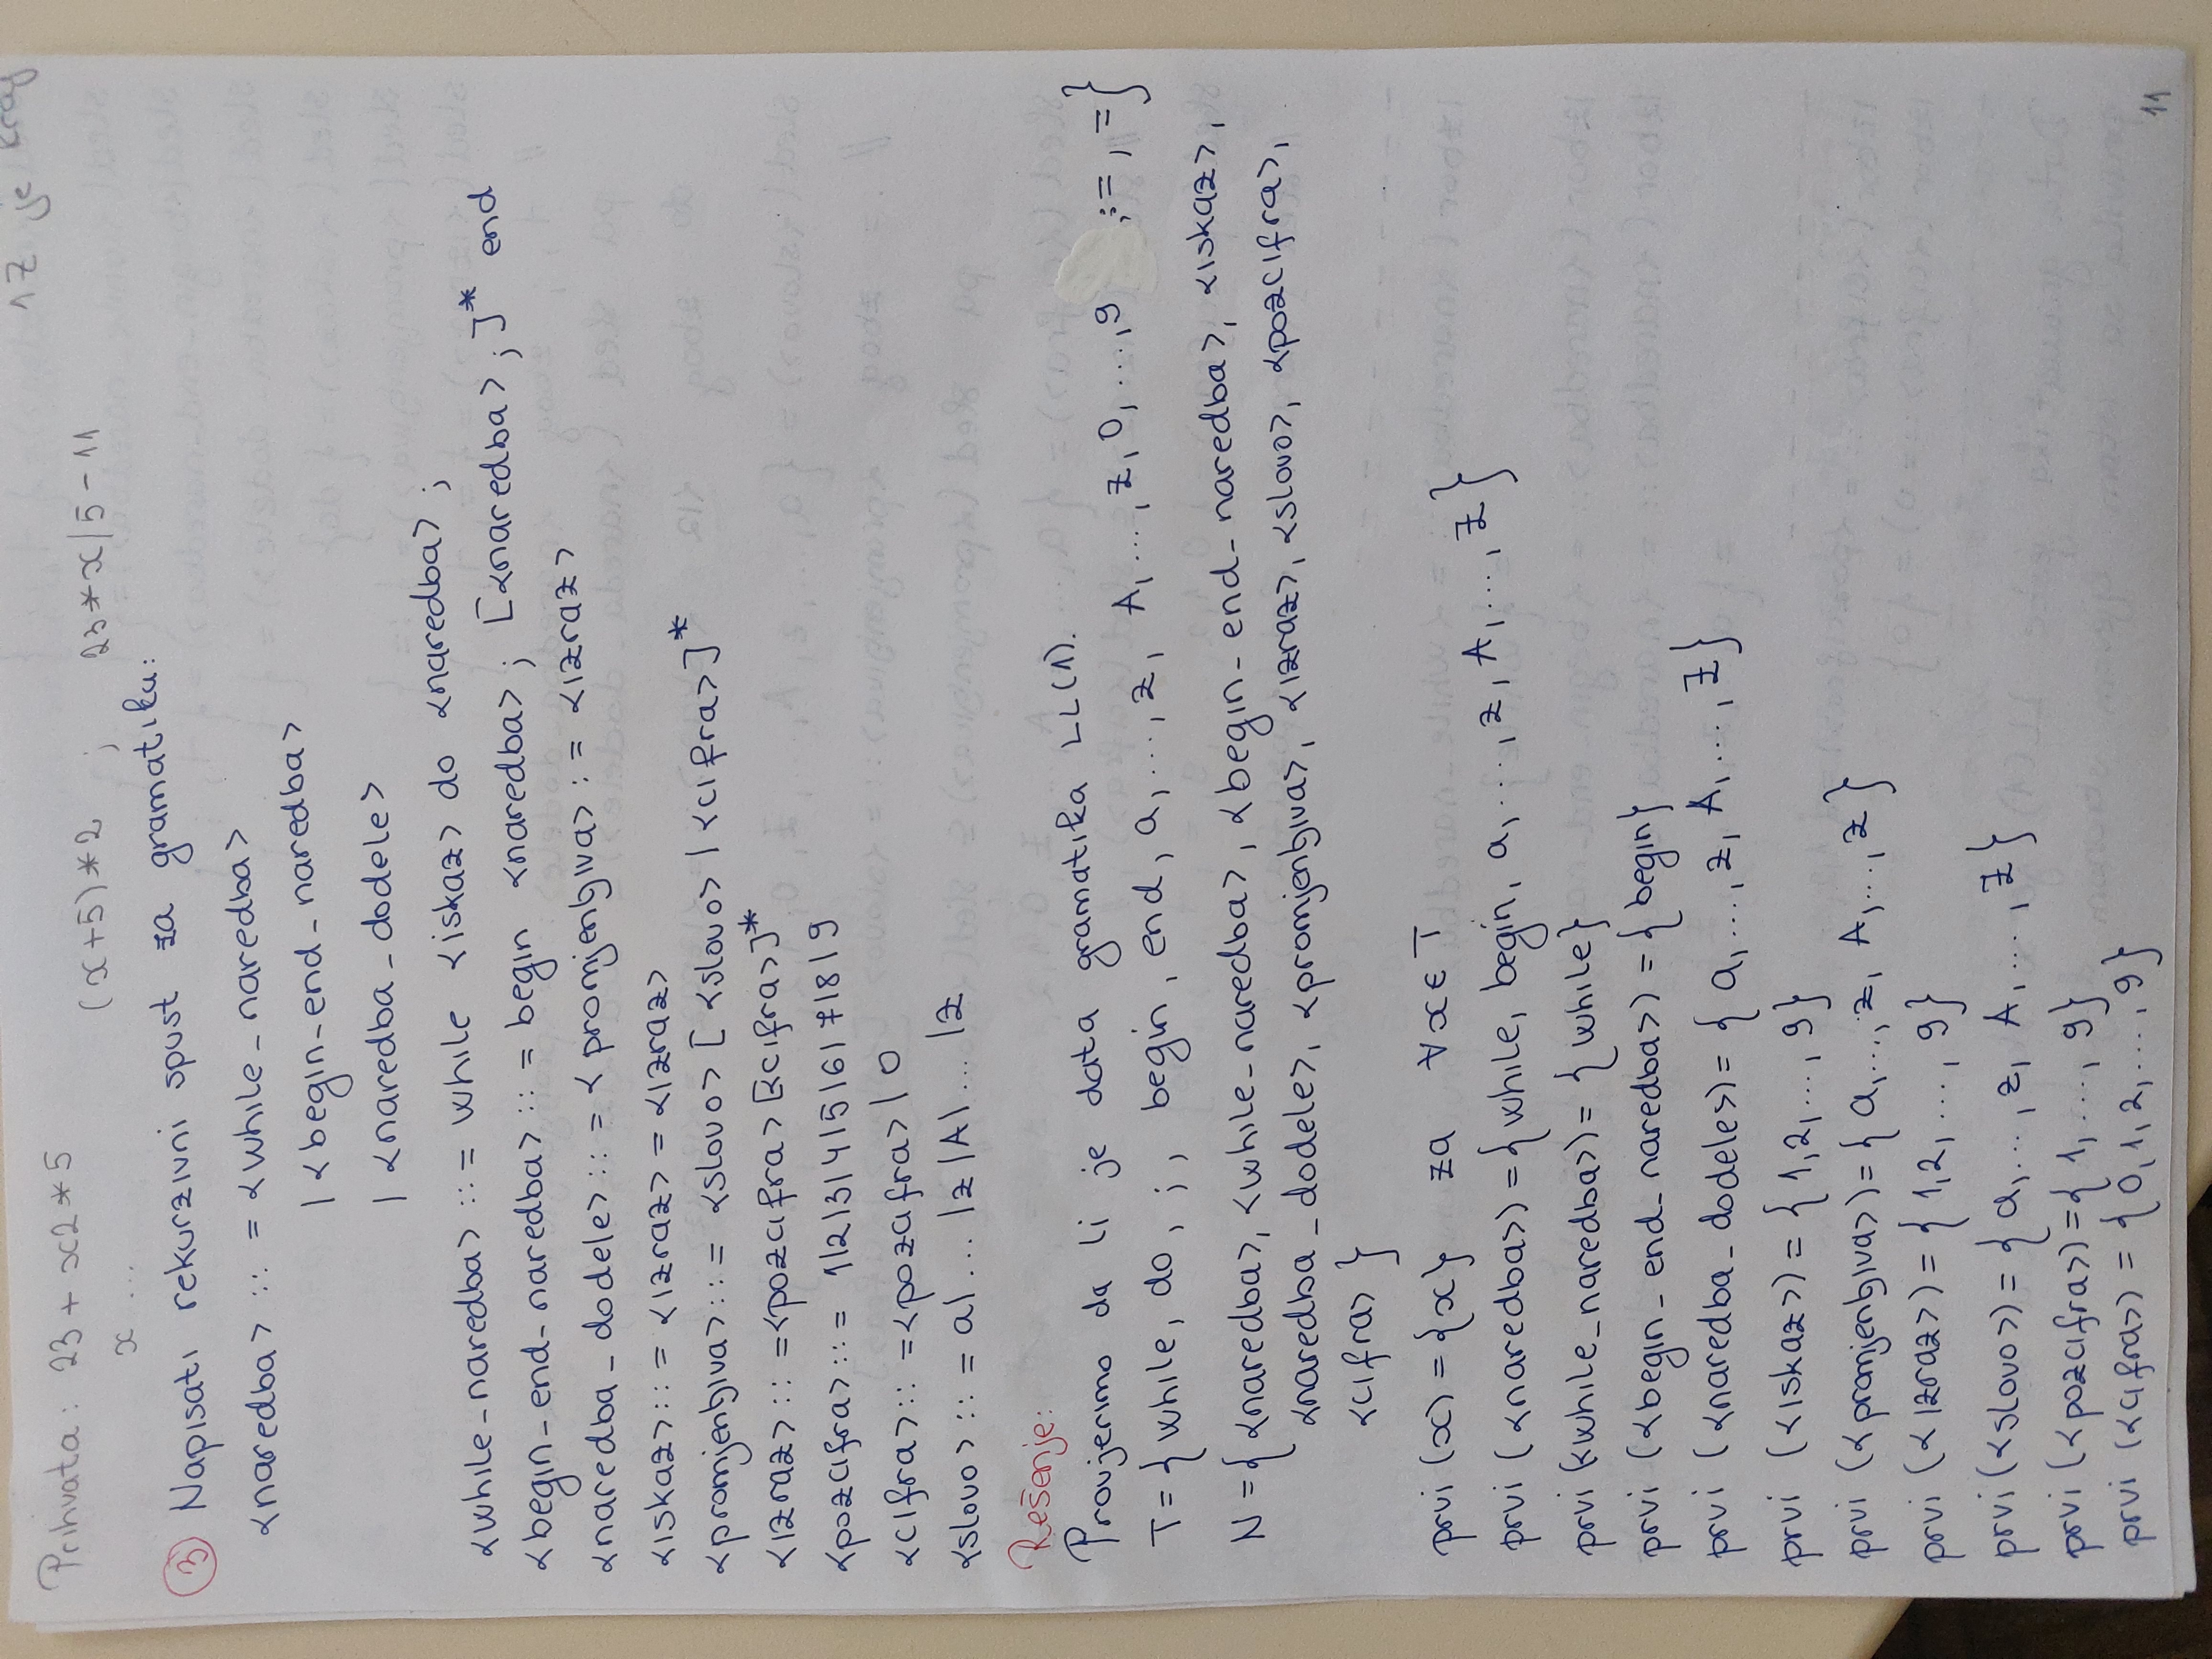 1Z je kraj
Prihvata: 23 + x2 * 5
(x+5)*2 ; 23*x/5-11
x ...
3 Napisati rekurzivni spust za gramatiku:
<naredba> ::= <while_naredba>
| <begin_end_naredba>
| <naredba_dodele>
<while_naredba> ::= while <iskaz> do <naredba> ;
<begin_end_naredba> ::= begin <naredba> ; [<naredba> ;]* end
<naredba_dodele> ::= <promjenljiva> := <izraz>
<iskaz> ::= <izraz> = <izraz>
<promjenljiva> ::= <slovo> [<slovo> | <cifra>]*
<izraz> ::= <pozcifra> [<cifra>]*
<pozcifra> ::= 1|2|3|4|5|6|7|8|9
<cifra> ::= <pozcifra> | 0
<slovo> ::= a| ... |z|A| ... |Z
Rešenje:
Provjerimo da li je data gramatika LL(1).
T = {while, do, ;, begin, end, a, ..., z, A, ..., Z, 0, ..., 9 , :=, =}
N = {<naredba>, <while_naredba>, <begin_end_naredba>, <iskaz>,
<naredba_dodele>, <promjenljiva>, <izraz>, <slovo>, <pozcifra>,
<cifra> }
prvi (x) = {x} za ∀x∈T
prvi (<naredba>) = {while, begin, a, ..., z, A, ..., Z}
prvi (<while_naredba>) = {while}
prvi (<begin_end_naredba>) = {begin}
prvi (<naredba_dodele>) = {a, ..., z, A, ..., Z}
prvi (<iskaz>) = {1,2, ..., 9}
prvi (<promjenljiva>) = {a, ..., z, A, ..., Z}
prvi (<izraz>) = {1,2, ..., 9}
prvi (<slovo>) = {a, ..., z, A, ..., Z}
prvi (<pozcifra>) = {1, ..., 9}
prvi (<cifra>) = {0,1,2, ..., 9}
11